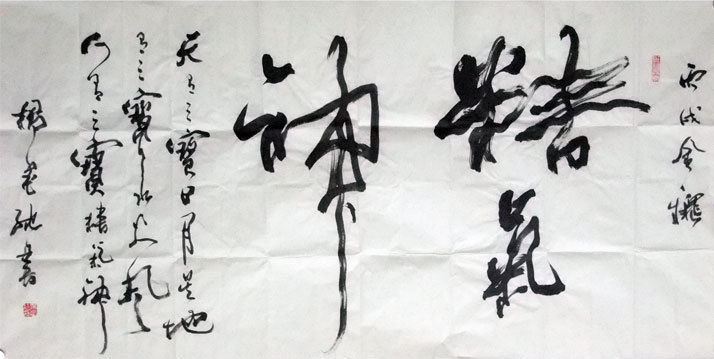 丙戌金龝
精氣
神
天有三寶日月星地
有三寶水火風
人有三寶精氣神
書